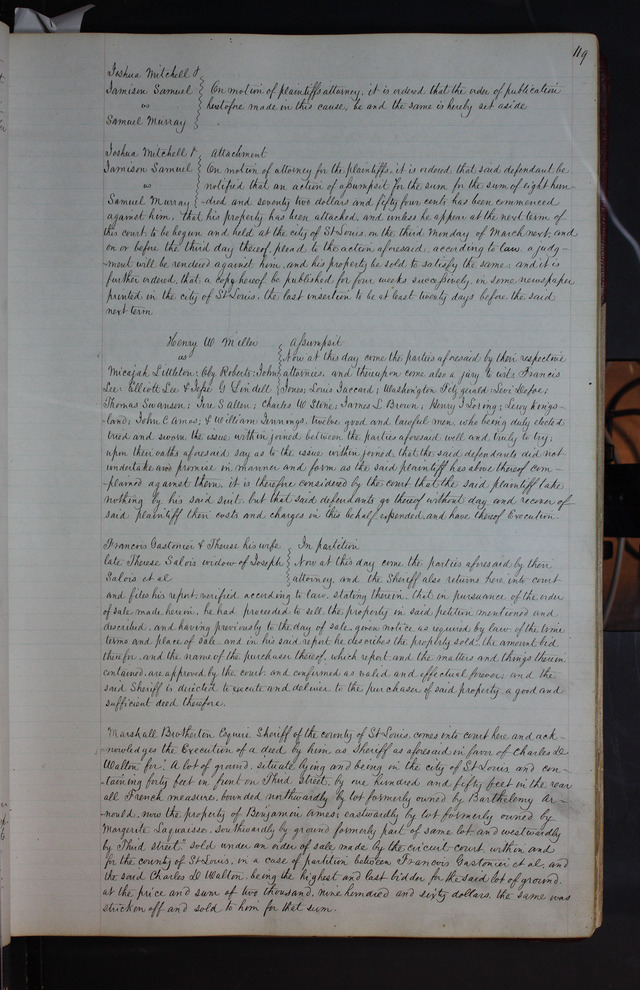 119
Joshua Mitchell &
Jamison Samuel
vs
Samuel Murray
On motion of plaintiffs attorney, it is ordered that the order of publication
heretofore made in this cause, be and the same is hereby set aside
Joshua Mitchell & Attachment
Jamison Samuel On motion of attorney for the plaintiffs, it is ordered that said defendant be
vs notified that an action of assumpsit for the sum for the sum of eight hun-
Samuel Murray -dred and seventy two dollars and fifty four cents has been commenced
against him, that his property has been attached, and unless he appear at the next term of
this court, to be begun and held at the city of St Louis, on the third Monday of March next, and
on or before the third day thereof, plead to the action aforesaid, according to law, a judg-
-ment will be rendered against him, and his property be sold to satisfy the same; and it is
further ordered, that a copy hereof be published for four weeks successively, in some newspaper
printed in the city of St Louis, the last insertion to be at least twenty days before the said
next term
Henry W Miller Assumpsit
vs Now at this day come the parties aforesaid by their respective
Micajah Littleton; Oby Roberts; John attorneys, and thereupon come also a jury to wit; Francis
Lee; Elliott Lee & Jesse G Lindell Jones; Louis Jaccard; Washington Fitzgerald; Levi Defoe;
Thomas Swanson; Ira S Allen; Charles W Stone; James L Brown; Henry J Loring; Leroy Kings-
-land; John C Ames; & William Jennings, twelve good and lawful men, who being duly elected
tried and sworn, the issue within joined between the parties aforesaid well and truly to try;
upon their oaths aforesaid say as to the issue within joined that the said defendants did not
undertake and promise in manner and form as the said plaintiff has above thereof com-
-plained against them, it is therefore considered by the court that the said plaintiff take
nothing by his said suit, but that said defendants go thereof without day and recover of
said plaintiff their costs and charges in this behalf expended, and have thereof Execution
Francois Gastonier & Therese his wife In partition
late Therese Salois widow of Joseph Now at this day come the parties aforesaid by their
Salois et al attorney, and the Sheriff also returns here into court
and files his report; verified according to law, stating therein, that in pursuance of the order
of sale made herein, he had proceeded to sell the property in said petition mentioned and
described, and having previously to the day of sale, given notice as required by law, of the time
terms and place of sale and in his said report he describes the property sold, the amount bid
therefor, and the name of the purchaser thereof, which report and the matters and things therein
contained, are approved by the court, and confirmed as valid and effectual forever; and the
said Sheriff is directed to execute and deliver to the purchaser of said property a good and
sufficient deed therefore.
Marshall Brotherton Esquire Sheriff of the county of St Louis, comes into court here and ack-
-nowledges the Execution of a deed by him as Sheriff as aforesaid in favor of Charles D
Walton for; "A lot of ground, situate lying and being in the city of St Louis and con-
-taining forty feet in front on Third Street, by one hundred and fifty feet in the rear
all French measure, bounded northwardly by lot formerly owned by Barthelemy Ar-
-nould, now the property of Benjamin Ames; eastwardly by lot formerly owned by
Margerite Laquaisse; southwardly by ground formerly part of same lot and westwardly
by Third Street" sold under an order of sale made by the circuit court within and
for the county of St Louis, in a case of partition between Francois Gastonier et al, and
the said Charles D Walton, being the highest and last bidder for the said lot of ground,
at the price and sum of two thousand, nine hundred and sixty dollars, the same was
stricken off and sold to him for that sum.